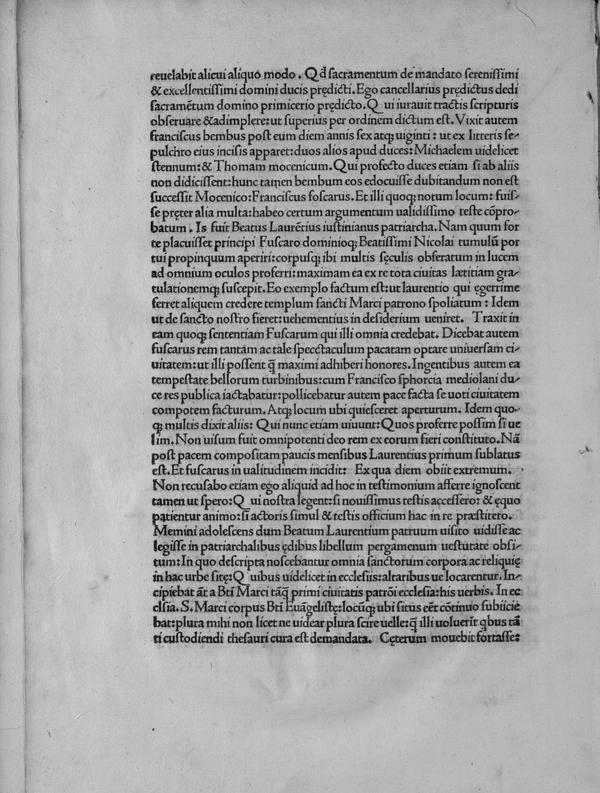 reuelabit alicui aliquo modo. Qd̄ sacramentum de mandato serenissimi
& excellentissimi domini ducis prędicti. Ego cancellarius prędictus dedi
sacramētum domino primicerio prędicto. Qui iurauit tractis scripturis
obseruare & adimplere: ut superius per ordinem dictum est. Vixit autem
franciscus bembus post eum diem annis sex atq; uiginti: ut ex litteris se/
pulchro eius incisis apparet: duos alios apud duces: Michaelem uidelicet
stennum: & Thomam mocenicum. Qui profecto duces etiam si ab aliis
non didicissent: hunc tamen bembum eos edocuisse dubitandum non est
successit Mocenico: Franciscus foscarus. Et illi quoq; notum locum: fuis/
se pręter alia multa: habeo certum argumentum ualidissimo teste cōpro/
batum. Is fuit Beatus Laurētius iustinianus patriarcha. Nam quum for
te placuisset principi Fuscaro dominioq; Beatissimi Nicolai tumulū por
tui propinquum aperiri: corpusq; ibi multis sęculis obseratum in lucem
ad omnium oculos proferri: maximam ea ex re tota ciuitas lætitiam gra/
tulationemq; suscepit. Eo exemplo factum est: ut laurentio qui ęgerrime
ferret aliquem credere templum sancti Marci patrono spoliatum: Idem
ut de sancto nostro fieret: uehementius in desiderium ueniret. Traxit in
eam quoq; sententiam Fuscarum qui illi omnia credebat. Dicebat autem
fuscarus rem tantam ac tale specctaculum pacatam optare uniuersam ci/
uitatem: ut illi possent q̄ maximi adhiberi honores. Ingentibus autem ea
tempestate bellorum turbinibus: cum Francisco sphorcia mediolani du/
ce res publica iactabatur: pollicebatur autem pace facta se uoti ciuitatem
compotem facturum. Atq; locum ubi quiesceret aperturum. Idem quo/
q; multis dixit aliis: Qui nunc etiam uiuunt: Quos proferre possim si ue
lim. Non uisum fuit omnipotenti deo rem ex eorum fieri constituto. Nā
post pacem compositam paucis mensibus Laurentius primum sublatus
est. Et fuscarus in ualitudinem incidit: Ex qua diem obiit extremum.
Non recusabo etiam ego aliquid ad hoc in testimonium afferre ignoscent
tamen ut spero: Qui nostra legent: si nouissimus testis accessero: & ęquo
patientur animo: si actoris simul & testis officium hac in re præstitero.
Memini adolescens dum Beatum Laurentium patruum uisito uidisse ac
legisse in patriarchalibus ędibus libellum pergamenum uestutate obsi/
tum: In quo descripta noscebantur omnia sanctorum corpora ac reliquię
in hac urbe sitę: Quibus uidelicet in ecclesiis: altaribus ue locarentur. In/
cipiebat āt a Btī Marci tāq̄ primi ciuitatis patrōi ecclesia: his uerbis. In ec
clsia. S. Marci corpus Btī Euāgelistę: locūq; ubi situs eēt cōtinuo subiicie
bat: plura mihi non licet ne uidear plura scire uelle: q̄ illi uoluerīt qbus tā
ti custodiendi thesauri cura est demandata. Cęterum mouebit fortasse: